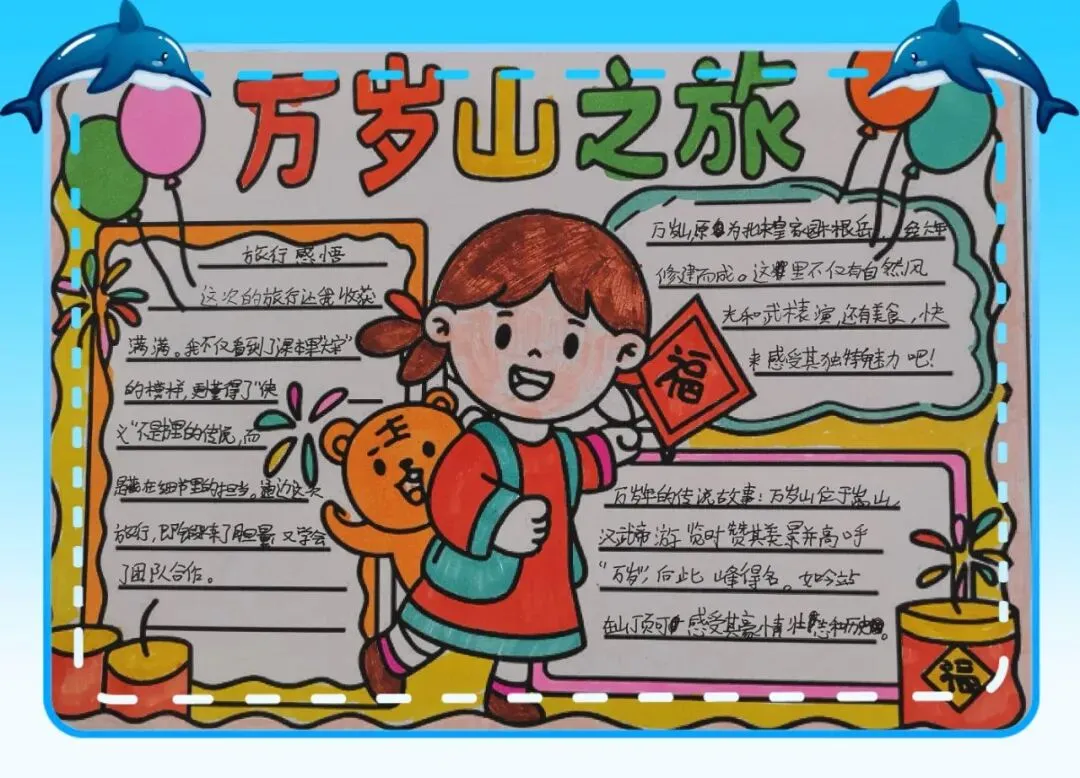 万岁山之旅
旅行感悟
这次的旅行让我收获
满满。我不仅看到了课本里
的模样,更懂得了"侠
义"不是书里的传说,而
是藏在细节里的担当。通过这次
旅行,即锻练了胆量又学会
了团队合作。
万岁山,原名为北宋皇家园林艮岳,
修建而成。这里不仅有自然风
光和武术表演,还有美食,快
来感受其独特魅力吧!
福
万岁山的传说故事:万岁山位于嵩山。
汉武帝游览时赞其美景并高呼
"万岁",山峰得名。如今站
在山顶可感受其豪情壮志和历史。
王
福